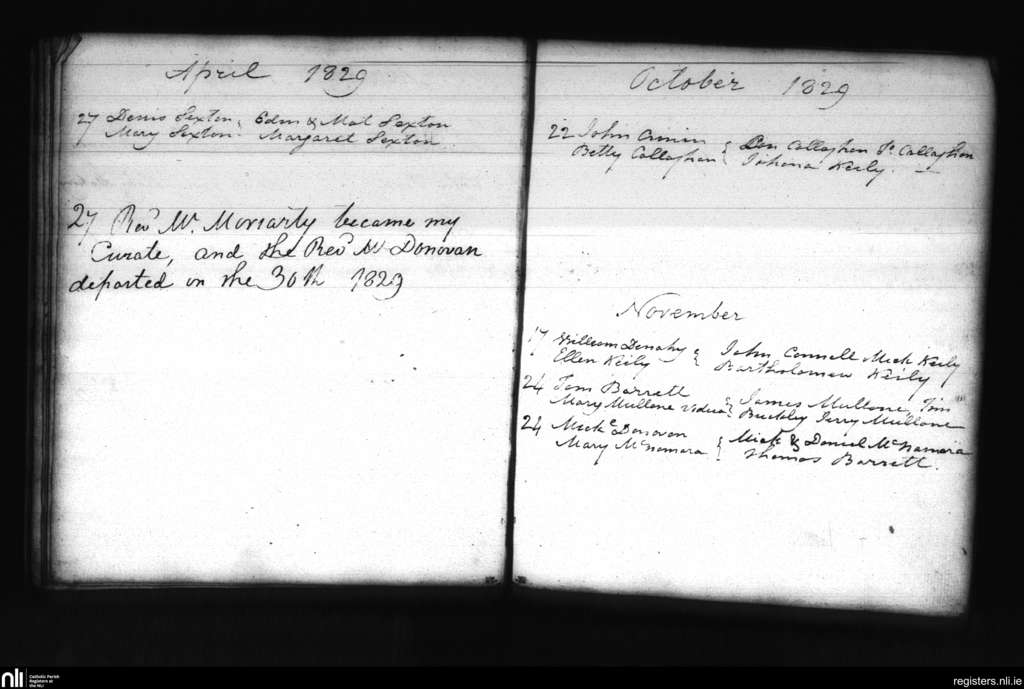 April 1829
27 Denis Sexton Edm & Mat Sexton
Mary Sexton Margaret Sexton
27 Revd Mr. Moriarty became my
Curate, and the Revd Mr Donovan
departed on the 30th 1829
October 1829
22 John Don Callaghan Callaghan
Betty Callaghan Johana Keily.
November
17 William Donahy John Connell Mick Keily
Ellen Keily Bartholomew Keily
24 Tom Barrett James Mullone, Tim
Mary Mullone vidua Buckley Jerry Mullone
24 Micke Donovan Mick & Daniel McNamara
Mary McNamara Thomas Barrett.
nli
Catholic Parish
Registers at
the NLI
registers.nli.ie